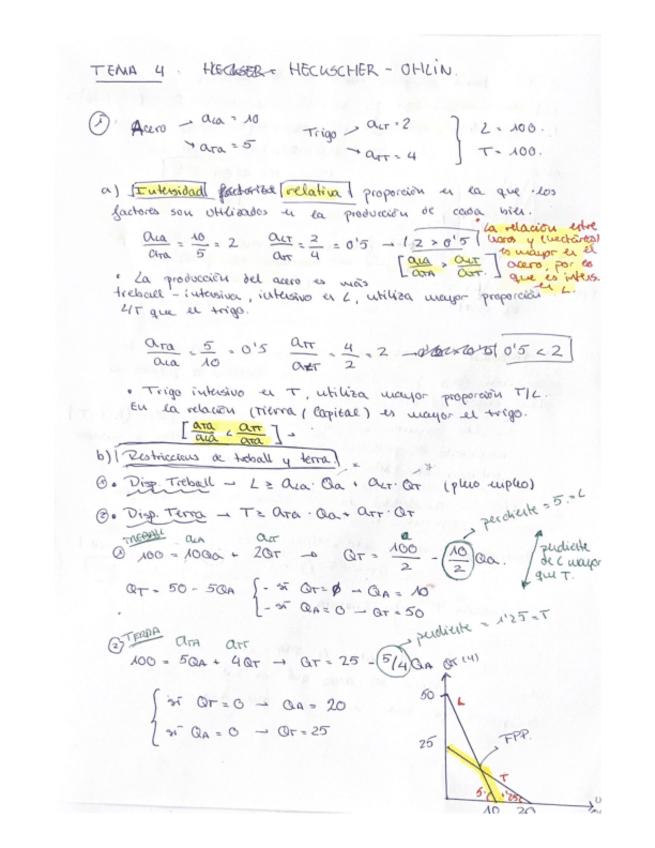 TEMA 4. HECKSCHER - OHLIN.
1) Acero → aLA = 10 Trigo → aLT = 2 L = 100.
→ aTA = 5 → aTT = 4 T = 100.
a) Intensidad factorial relativa proporción en la que los
factores son utilizados en la producción de cada bien.
aLA/aTA = 10/5 = 2 aLT/aTT = 2/4 = 0'5 → 2 > 0'5
[aLA/aTA > aLT/aTT]
• La relación entre
horas y (hectáreas)
es mayor en el
acero, por lo
que es intens.
en L.
• La producción del acero es más
treball-intensiva, intensivo en L, utiliza mayor proporción
L/T que el trigo.
aTA/aLA = 5/10 = 0'5 aTT/aLT = 4/2 = 2 → 0'5 < 2
• Trigo intensivo en T, utiliza mayor proporción T/L.
En la relación (tierra/capital) es mayor el trigo.
b) Restriccions de treball y terra.
1) • Disp. Treball → L ≥ aLA · QA + aLT · QT (pleno empleo)
2) • Disp. Terra → T ≥ aTA · QA + aTT · QT
TREBALL aLA aLT
1) 100 = 10QA + 2QT → QT = 100/2 - 10/2 QA.
pendiente = 5 = L
pendiente
de L mayor
que T.
QT = 50 - 5QA - si QT = 0 → QA = 10
- si QA = 0 → QT = 50
2) TERRA aTA aTT
100 = 5QA + 4QT → QT = 25 - 5/4 QA
pendiente = 1'25 = T
si QT = 0 → QA = 20
si QA = 0 → QT = 25
50
L
25
FPP.
T
5
1'25
10 20